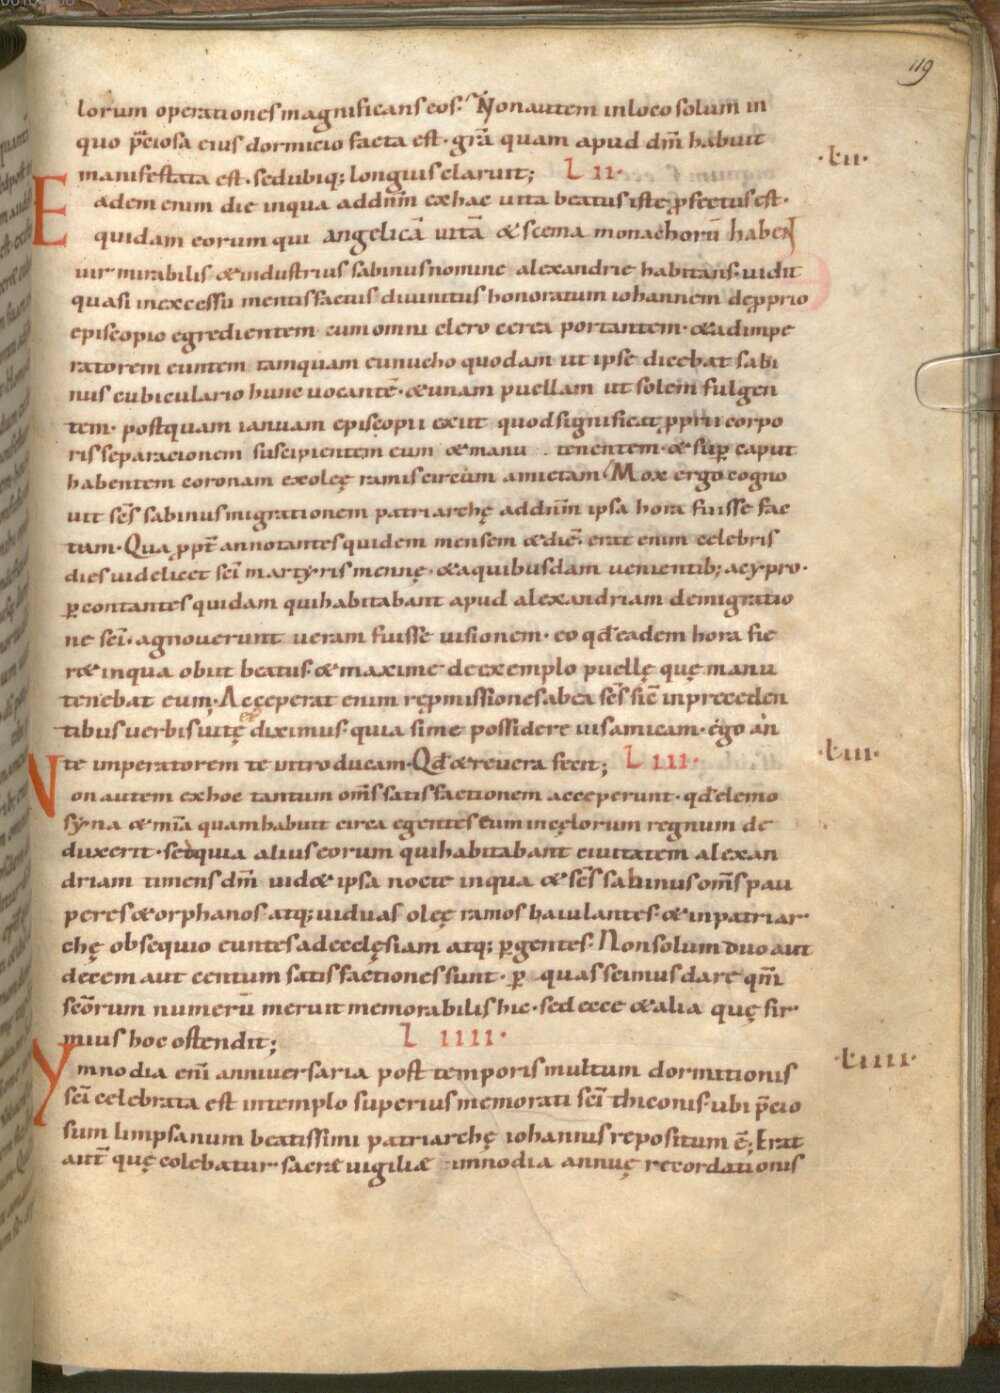 119
lorum operationes magnificans eos. Non autem in loco solum in
quo p̄ciosa eius dormicio facta est· grā quam apud dm̄ habuit
manifestata est· sed ubiq; longius claruit; L II·
·LII·
Eadem enim die in qua ad dnm̄ ex hac uita beatus iste ꝓfectus est·
quidam eorum qui angelicā uitā & scema monachorū haben
uir mirabilis & industrius sabinus nomine alexandrie habitans· uidit
quasi in excessu mentis factus diuinitus honoratum iohannem de ꝓprio
episcopio egredientem cum omni clero cerea portantem· & ad impe
ratorem euntem tamquam eunucho quodam ut ipse dicebat sabi
nus cubiculario hunc uocantē· & unam puellam ut solem fulgen
tem· postquam ianuam episcopii exiit quod significat ꝓprii corpo
ris separacionem suscipientem eum & manu tenentem· & sup̄ caput
habentem coronam ex oleę ramis circum amictam· Mox ergo cogno
uit scs̄ sabinus migrationem patriarchę ad dnm̄ ipsa hora fuisse fac
tam· Qua ꝓpt̄ annotantes quidem mensem & diē· erat enim celebris
dies uidelicet scī martyris mennę· & a quibusdam uenientib; a cypro·
ꝑcontantes quidam qui habitabant apud alexandriam de migratio
ne scī· agnouerunt ueram fuisse uisionem· eo qđ eadem hora fie
r& in qua obiit beatus· & maxime de exemplo puellę quę manu
tenebat eum· Acceperat enim repmissiones ab ea scs̄ sic̄ in preceden
tibus uerbis uitę ei diximus· quia si me possidere uis amicam· ego an
te imperatorem te introducam· Qđ & reuera fecit; L III·
·LIII·
Non autem ex hoc tantum oms̄ satisfactionem acceperunt· qđ elemo
syna & mīa quam habuit circa egentes eum in cęlorum regnum de
duxerit· sed quia alius eorum qui habitabant ciuitatem alexan
driam timens dm̄ uid& ipsa nocte in qua & scs̄ sabinus oms̄ pau
peres & orphanos atq; uiduas· oleę ramos baiulantes· & in patriar
chę obsequio euntes ad ecclęsiam atq; ꝑgentes· Non solum duo aut
decem aut centum satisfactiones sunt· ꝑ quas scimus dare qm̄
scōrum numerū meruit memorabilis hic· sed ecce & alia quę fir
mius hoc ostendit; L IIII·
·LIIII·
Ymnodia eni anniuersaria post temporis multum dormitionis
scī celebrata est in templo superius memorati scī thiconis· ubi p̄cio
sum limpsanum beatissimi patriarchę iohannis repositum ē; Erat
aut̄ quę colebatur sacræ uigiliæ imnodia annuę recordationis